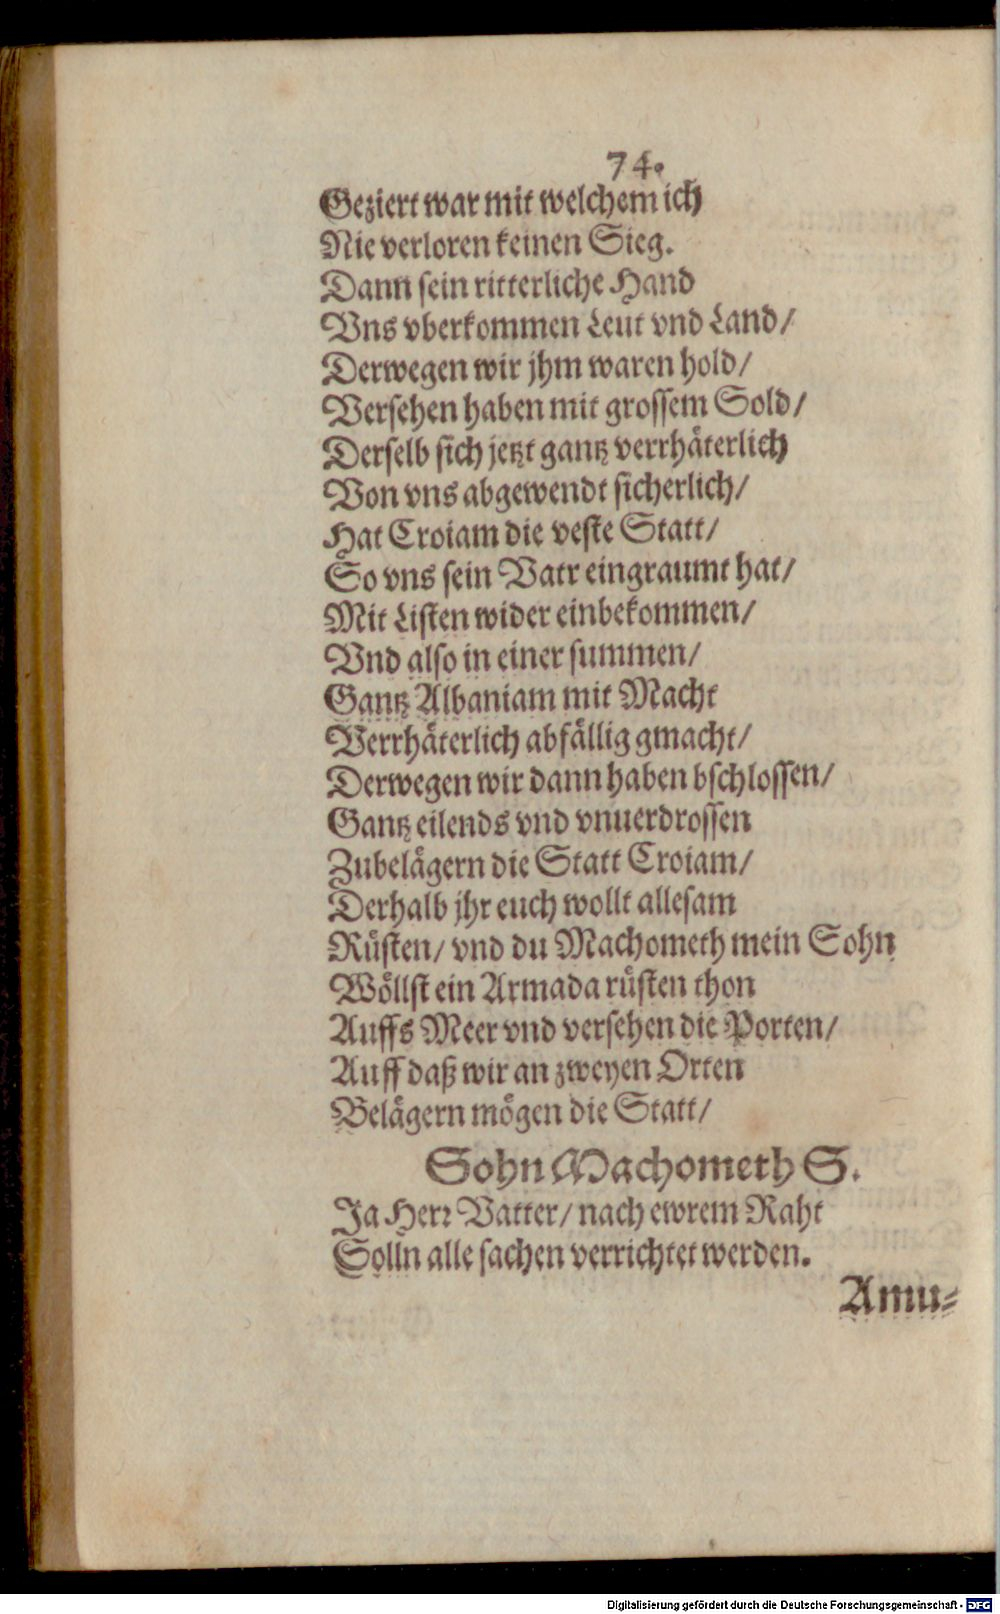 74.
Geziert war mit welchem ich
Nie verloren keinen Sieg.
Dann sein ritterliche Hand
Vns vberkommen Leut vnd Land/
Derwegen wir jhm waren hold/
Versehen haben mit grossem Sold/
Derselb sich jetzt gantz verrhäterlich
Von vns abgewendt sicherlich/
Hat Croiam die veste Statt/
So vns sein Vatr eingraumt hat/
Mit Listen wider einbekommen/
Vnd also in einer summen/
Gantz Albaniam mit Macht
Verrhäterlich abfällig gmacht/
Derwegen wir dann haben bschlossen/
Gantz eilends vnd vnuerdrossen
Zubelägern die Statt Croiam/
Derhalb jhr euch wollt allesam
Rüsten/ vnd du Machometh mein Sohn
Wöllst ein Armada rüsten thon
Auffs Meer vnd versehen die Porten/
Auff daß wir an zweyen Orten
Belägern mögen die Statt/
Sohn Machometh S.
Ja Herr Vatter/ nach ewrem Raht
Solln alle sachen verrichtet werden.
Amu-
Digitalisierung gefördert durch die Deutsche Forschungsgemeinschaft - DFG